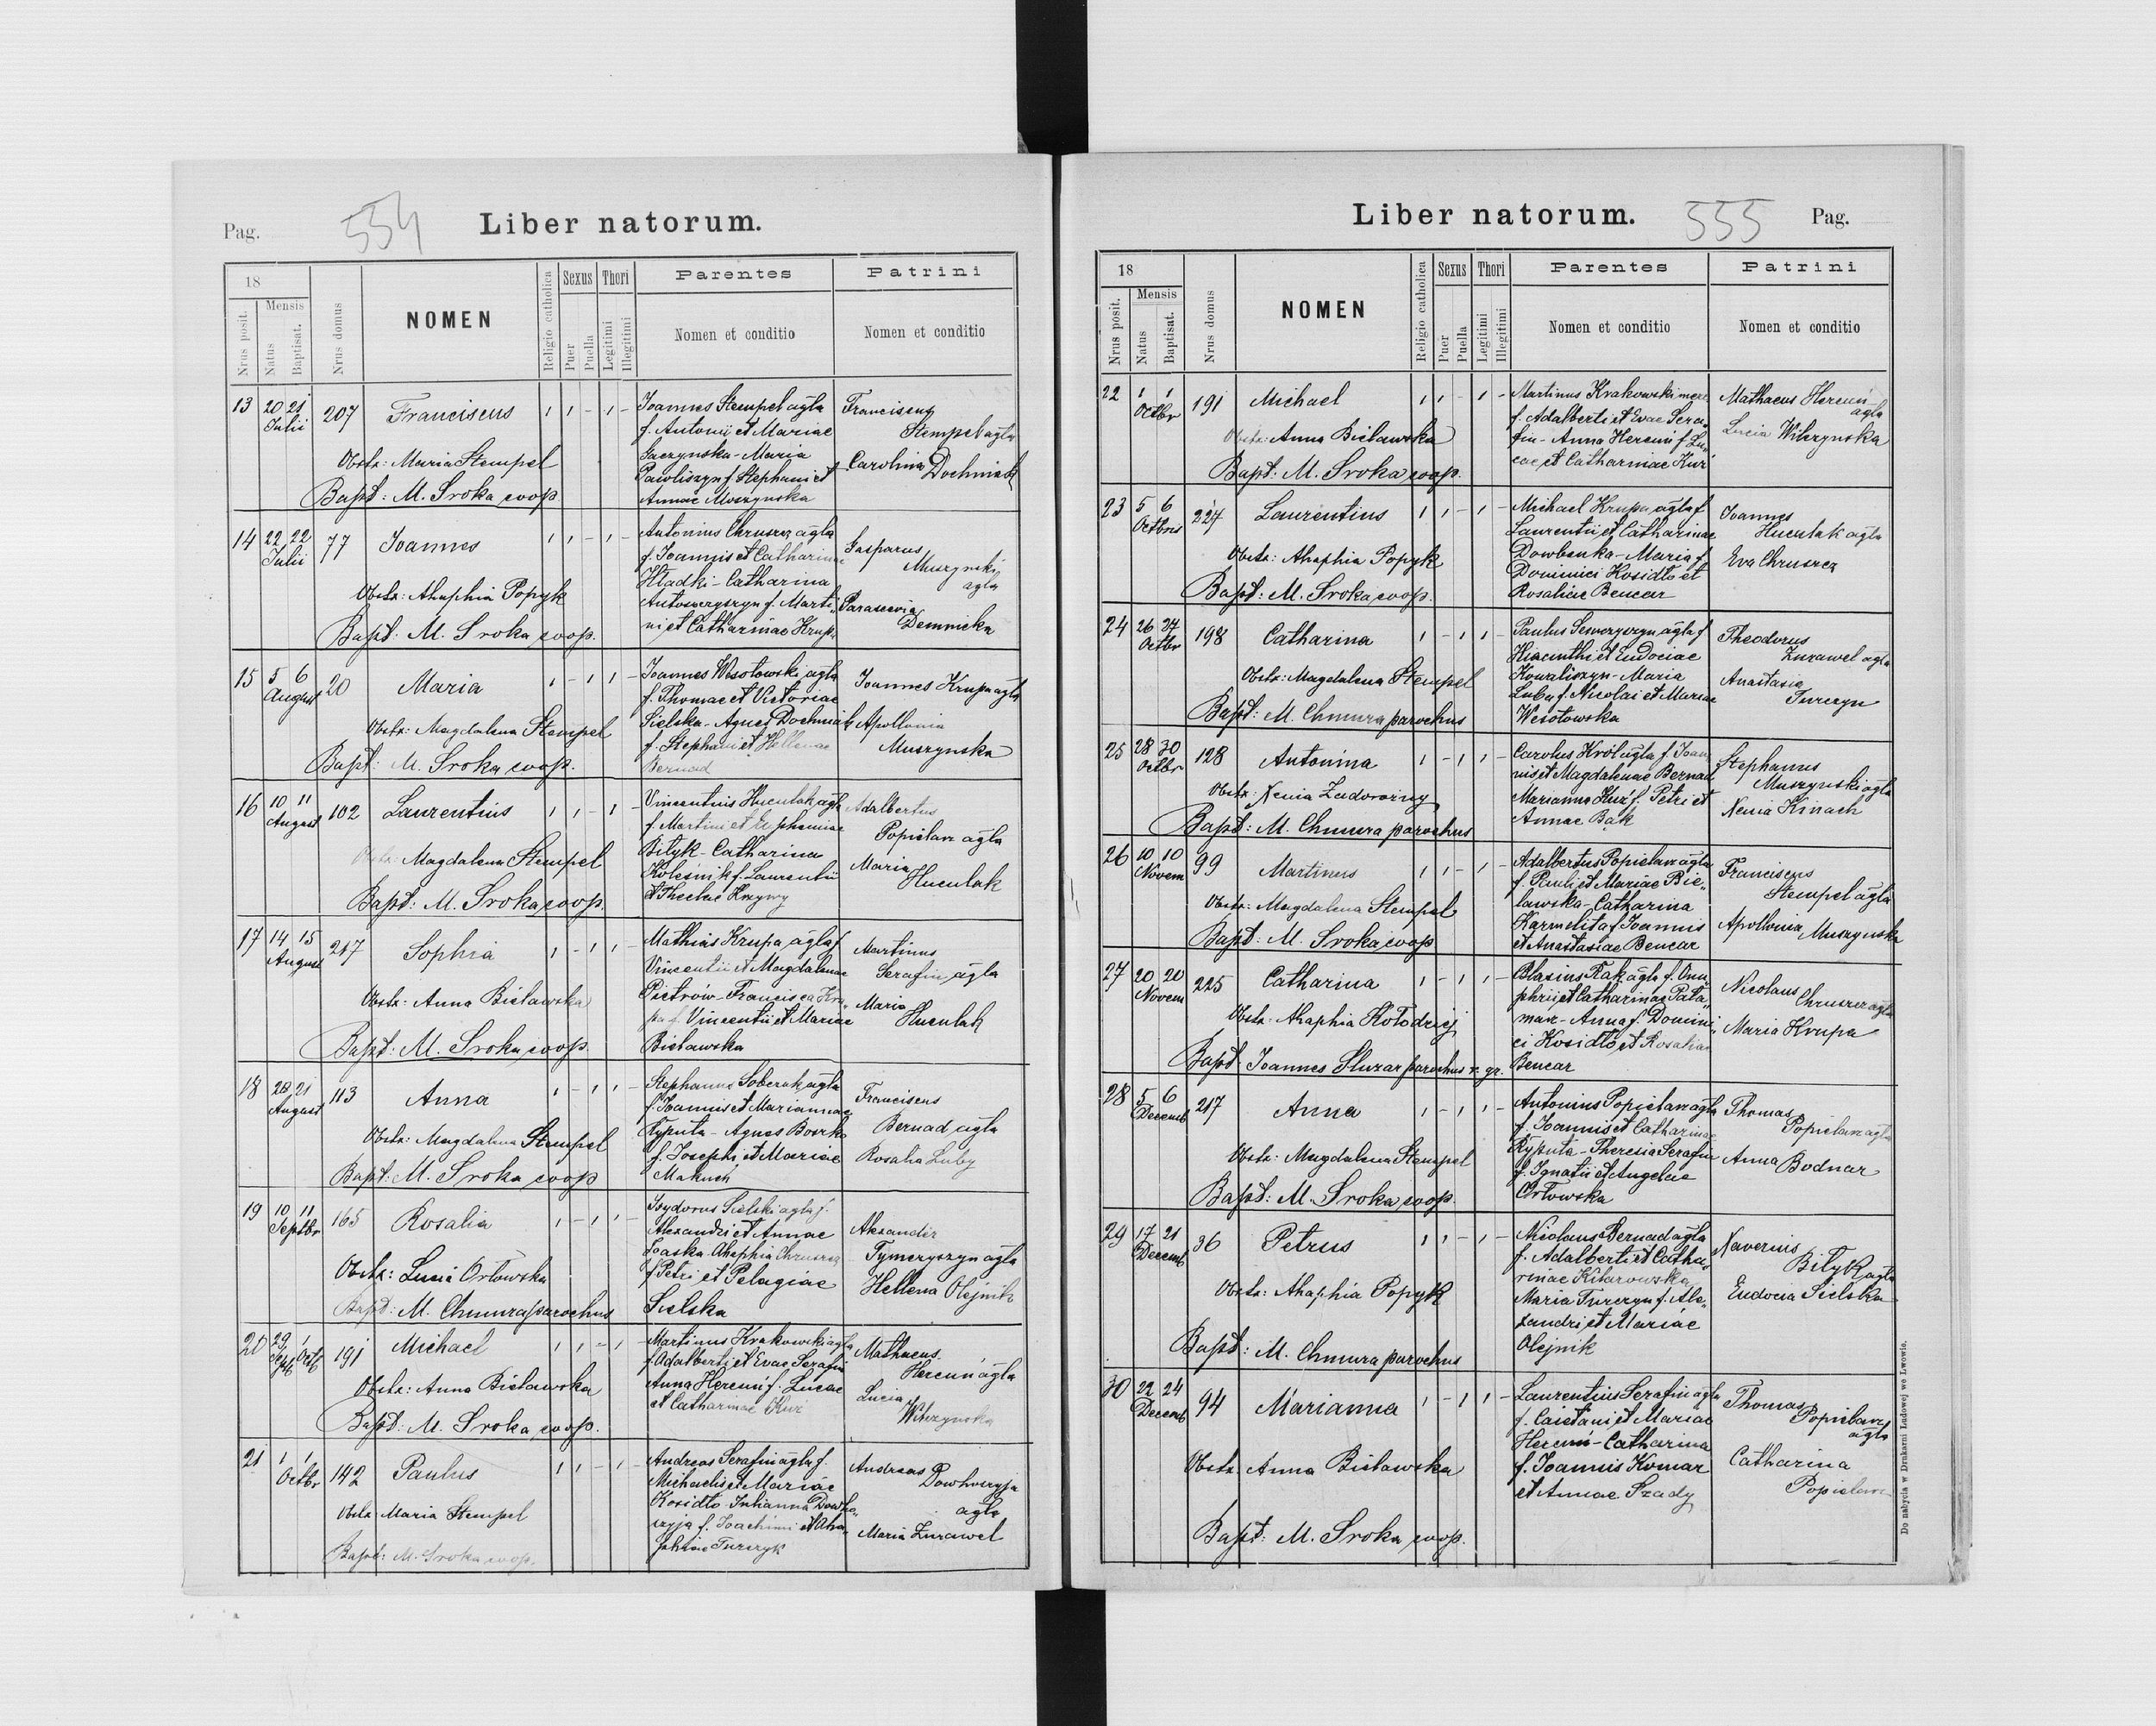 Pag.
554
Liber natorum.
18
Nrus posit.
Mensis
Natus
Baptisat.
Nrus domus
NOMEN
Religio catholica
Sexus
Puer
Puella
Thori
Legitimi
Illegitimi
Parentes
Nomen et conditio
Patrini
Nomen et conditio
13 20 21 Julii 207 Franciscus 1 1 - 1 -
Obstx: Maria Stempel
Bapt: M. Sroka coop.
Joannes Stempel agla
f. Antonii et Mariae
Saczynska - Maria
Pawliszyn f. Stephani et
Annae Muszynska
Franciscus
Stempel agla
Carolina Dochniak
14 22 22 Julii 77 Joannes 1 1 - 1 -
Obstx: Ahaphia Popyk
Bapt: M. Sroka coop.
Antonius Chruszcz agla
f. Joannis et Catharinae
Hładki - Catharina
f. Marti„
ni et Catharinae Krup.
Gasparus
Muszynski
agla
Parascevia
Demnicka
15 5 6 August 20 Maria 1 - 1 1 -
Obstx: Magdalena Stempel
Bapt: M. Sroka coop.
Joannes Wesołowski agla
f. Thomae et Victoriae
Sielska - Agnes Dochniak
f. Stephani et Hellenae
Bernad
Joannes Krupa agla
Apollonia
Muszynska
16 10 11 August 102 Laurentius 1 1 - 1 -
Obstx: Magdalena Stempel
Bapt: M. Sroka coop.
Vincentius Huculak agla
f. Martini et Euphemiae
Bilyk - Catharina
Kolesnik f. Laurentii
et Theclae Krzywy
Adalbertus
Popielarz agla
Maria
Huculak
17 14 15 August 217 Sophia 1 - 1 1 -
Obstx: Anna Bielawska
Bapt: M. Sroka coop.
Mathias Krupa agla f.
Vincentii et Magdalenae
Pietrów - Francisca Kru„
pa f. Vincentii et Mariae
Bielawska
Martinus
Serafin agla
Maria
Huculak
18 20 21 August 113 Anna 1 - 1 1 -
Obstx: Magdalena Stempel
Bapt: M. Sroka coop
Stephanus Soberak agla
f. Joannis et Mariannae
Ryputa - Agnes
f. Josephi et Mariae
Makuch
Franciscus
Bernad agla
Rosalia Luby
19 10 11 Septbr 165 Rosalia 1 - 1 1 -
Obstx: Lucia Orłowska
Bapt: M. Chmura parochus
Isydorus Sielski agla f.
Alexandri et Annae
Ahaphia Chruszcz
f. Petri et Pelagiae
Sielska
Alexander
Tymeryszyn agla
Hellena Olejnik
20 29 Septb 1 Octb 191 Michael 1 1 - 1
Obstx: Anna Bielawska
Bapt: M. Sroka coop.
Martinus Krakowski agla
f. Adalberti et Evae Serafin
Anna Hercuń f. Lucae
et Catharinae Kuź
Mathaeus
Hercuń agla
Lucia
Wilczynska
21 1 1 Octbr 142 Paulus 1 1 - 1 -
Obstx Maria Stempel
Bapt: M. Sroka coop.
Andreas Serafin agla f.
Michaelis et Mariae
Kosidło - Julianna Dowho„
szyja f. Joachimi et Aha„
phiae Turczyk
Andreas
Dowhoszyja
agla
Maria Zurawel
Liber natorum.
555
Pag.
18
Nrus posit.
Mensis
Natus
Baptisat.
Nrus domus
NOMEN
Religio catholica
Sexus
Puer
Puella
Thori
Legitimi
Illegitimi
Parentes
Nomen et conditio
Patrini
Nomen et conditio
22 1 1 Octbr 191 Michael 1 1 - 1 -
Obstx: Anna Bielawska
Bapt: M. Sroka coop.
Martinus Krakowski
f. Adalberti et Evae Sera„
fin - Anna Hercuń f. Lu„
cae et Catharinae Kuź
Mathaeus Hercuń
agla
Lucia Wilczynska
23 5 6 Octbris 224 Laurentius 1 1 - 1 -
Obstx: Ahaphia Popyk
Bapt: M. Sroka coop.
Michael Krupa agla f.
Laurentii et Catharinae
Dowbenka - Maria f.
Dominici Kosidło et
Rosaliae Bencar
Joannes
Huculak agla
Eva Chruszcz
24 26 27 Octbr 198 Catharina 1 - 1 1 -
Obstx: Magdalena Stempel
Bapt: M. Chmura parochus
Paulus Seweryszyn agla f.
Hiacinthi et Eudociae
Kowaliszyn - Maria
Luby f. Nicolai et Mariae
Wesołowska
Theodorus
Zurawel agla
Anastasia
Turczyn
25 28 30 Octbr 128 Antonina 1 - 1 1 -
Obstx: Xenia Zadorozny
Bapt: M. Chmura parochus
Carolus Król agla f. Joan„
nis et Magdalenae Bernad
Marianna Kuź f. Petri et
Annae Bąk
Stephanus
Muszynski agla
Xenia Kinach
26 10 10 Novem 99 Martinus 1 1 - 1 -
Obstx: Magdalena Stempel
Bapt: M. Sroka coop
Adalbertus Popielarz agla
f. Pauli et Mariae Bie„
lawska - Catharina
Karmelita f. Joannis
et Anastasiae Bencar
Franciscus
Stempel agla
Apollonia Muszynska
27 20 20 Novem 225 Catharina 1 - 1 1 -
Obstx: Ahaphia Kołodziej
Bapt. Joannes Sluzar parochus r. gr.
Blasius Rak agla f. Onu„
phrii et Catharinae Pała„
marz - Anna f. Domini„
ci Kosidło et Rosaliae
Bencar
Nicolaus
Chruszcz agla
Maria Krupa
28 5 6 Decemb 217 Anna 1 - 1 1 -
Obstx: Magdalena Stempel
Bapt: M. Sroka coop.
Antonius Popielarz agla
f. Joannis et Catharinae
Ryputa - Theresia Serafin
f. Ignatii et Angelae
Orłowska
Thomas
Popielarz agla
Anna Bodnar
29 17 21 Decemb 36 Petrus 1 1 - 1 -
Obstx: Ahaphia Popyk
Bapt: M. Chmura parochus
Nicolaus Bernad agla
f. Adalberti et Catha„
rinae Kitarowska
Maria Turczyn f. Ale„
xandri et Mariae
Olejnik
Xaverius
Bilyk agla
Eudocia Sielska
30 22 24 Decemb 94 Marianna 1 - 1 1 -
Obstx. Anna Bielawska
Bapt: M. Sroka coop.
Laurentius Serafin agla
f. Caietani et Mariae
Hercuń - Catharina
f. Joannis Komar
et Annae Szady
Thomas
Popielarz
agla
Catharina
Popielarz
Do nabycia w Drukarni Ludowej we Lwowie.